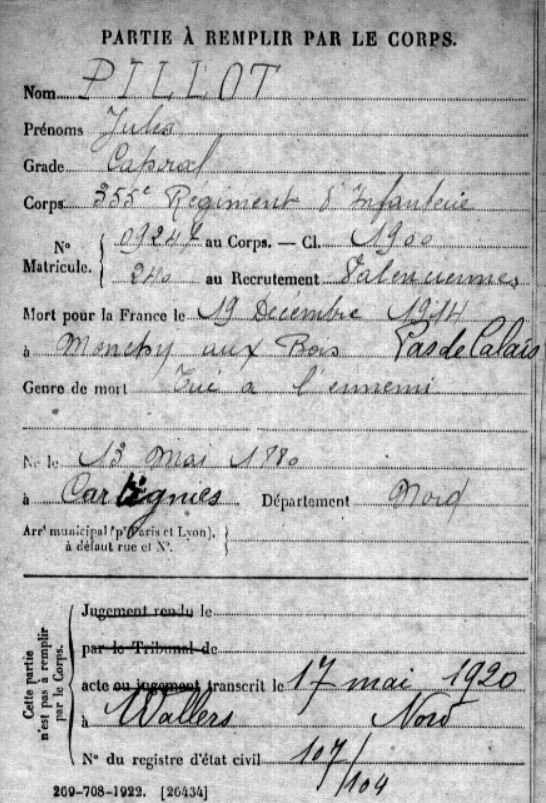 PARTIE À REMPLIR PAR LE CORPS.
Nom PILLOT
Prénoms Jules
Grade Caporal
Corps 355e Régiment d'Infanterie
Nº 09247 au Corps. — Cl. 1900
Matricule. 240 au Recrutement Valenciennes
Mort pour la France le 19 Décembre 1914
à Monchy aux Bois Pas de Calais
Genre de mort Tué à l'ennemi
Né le 13 Mai 1880
à Cartignies Département Nord
Arrt municipal (pr Paris et Lyon),
à défaut rue et Nº.
Cette partie
n'est pas à remplir
par le Corps.
Jugement rendu le
par le Tribunal de
acte ou jugement transcrit le 17 mai 1920
à Wallers Nord
Nº du registre d'état civil 107/104
269-708-1922. [26434]